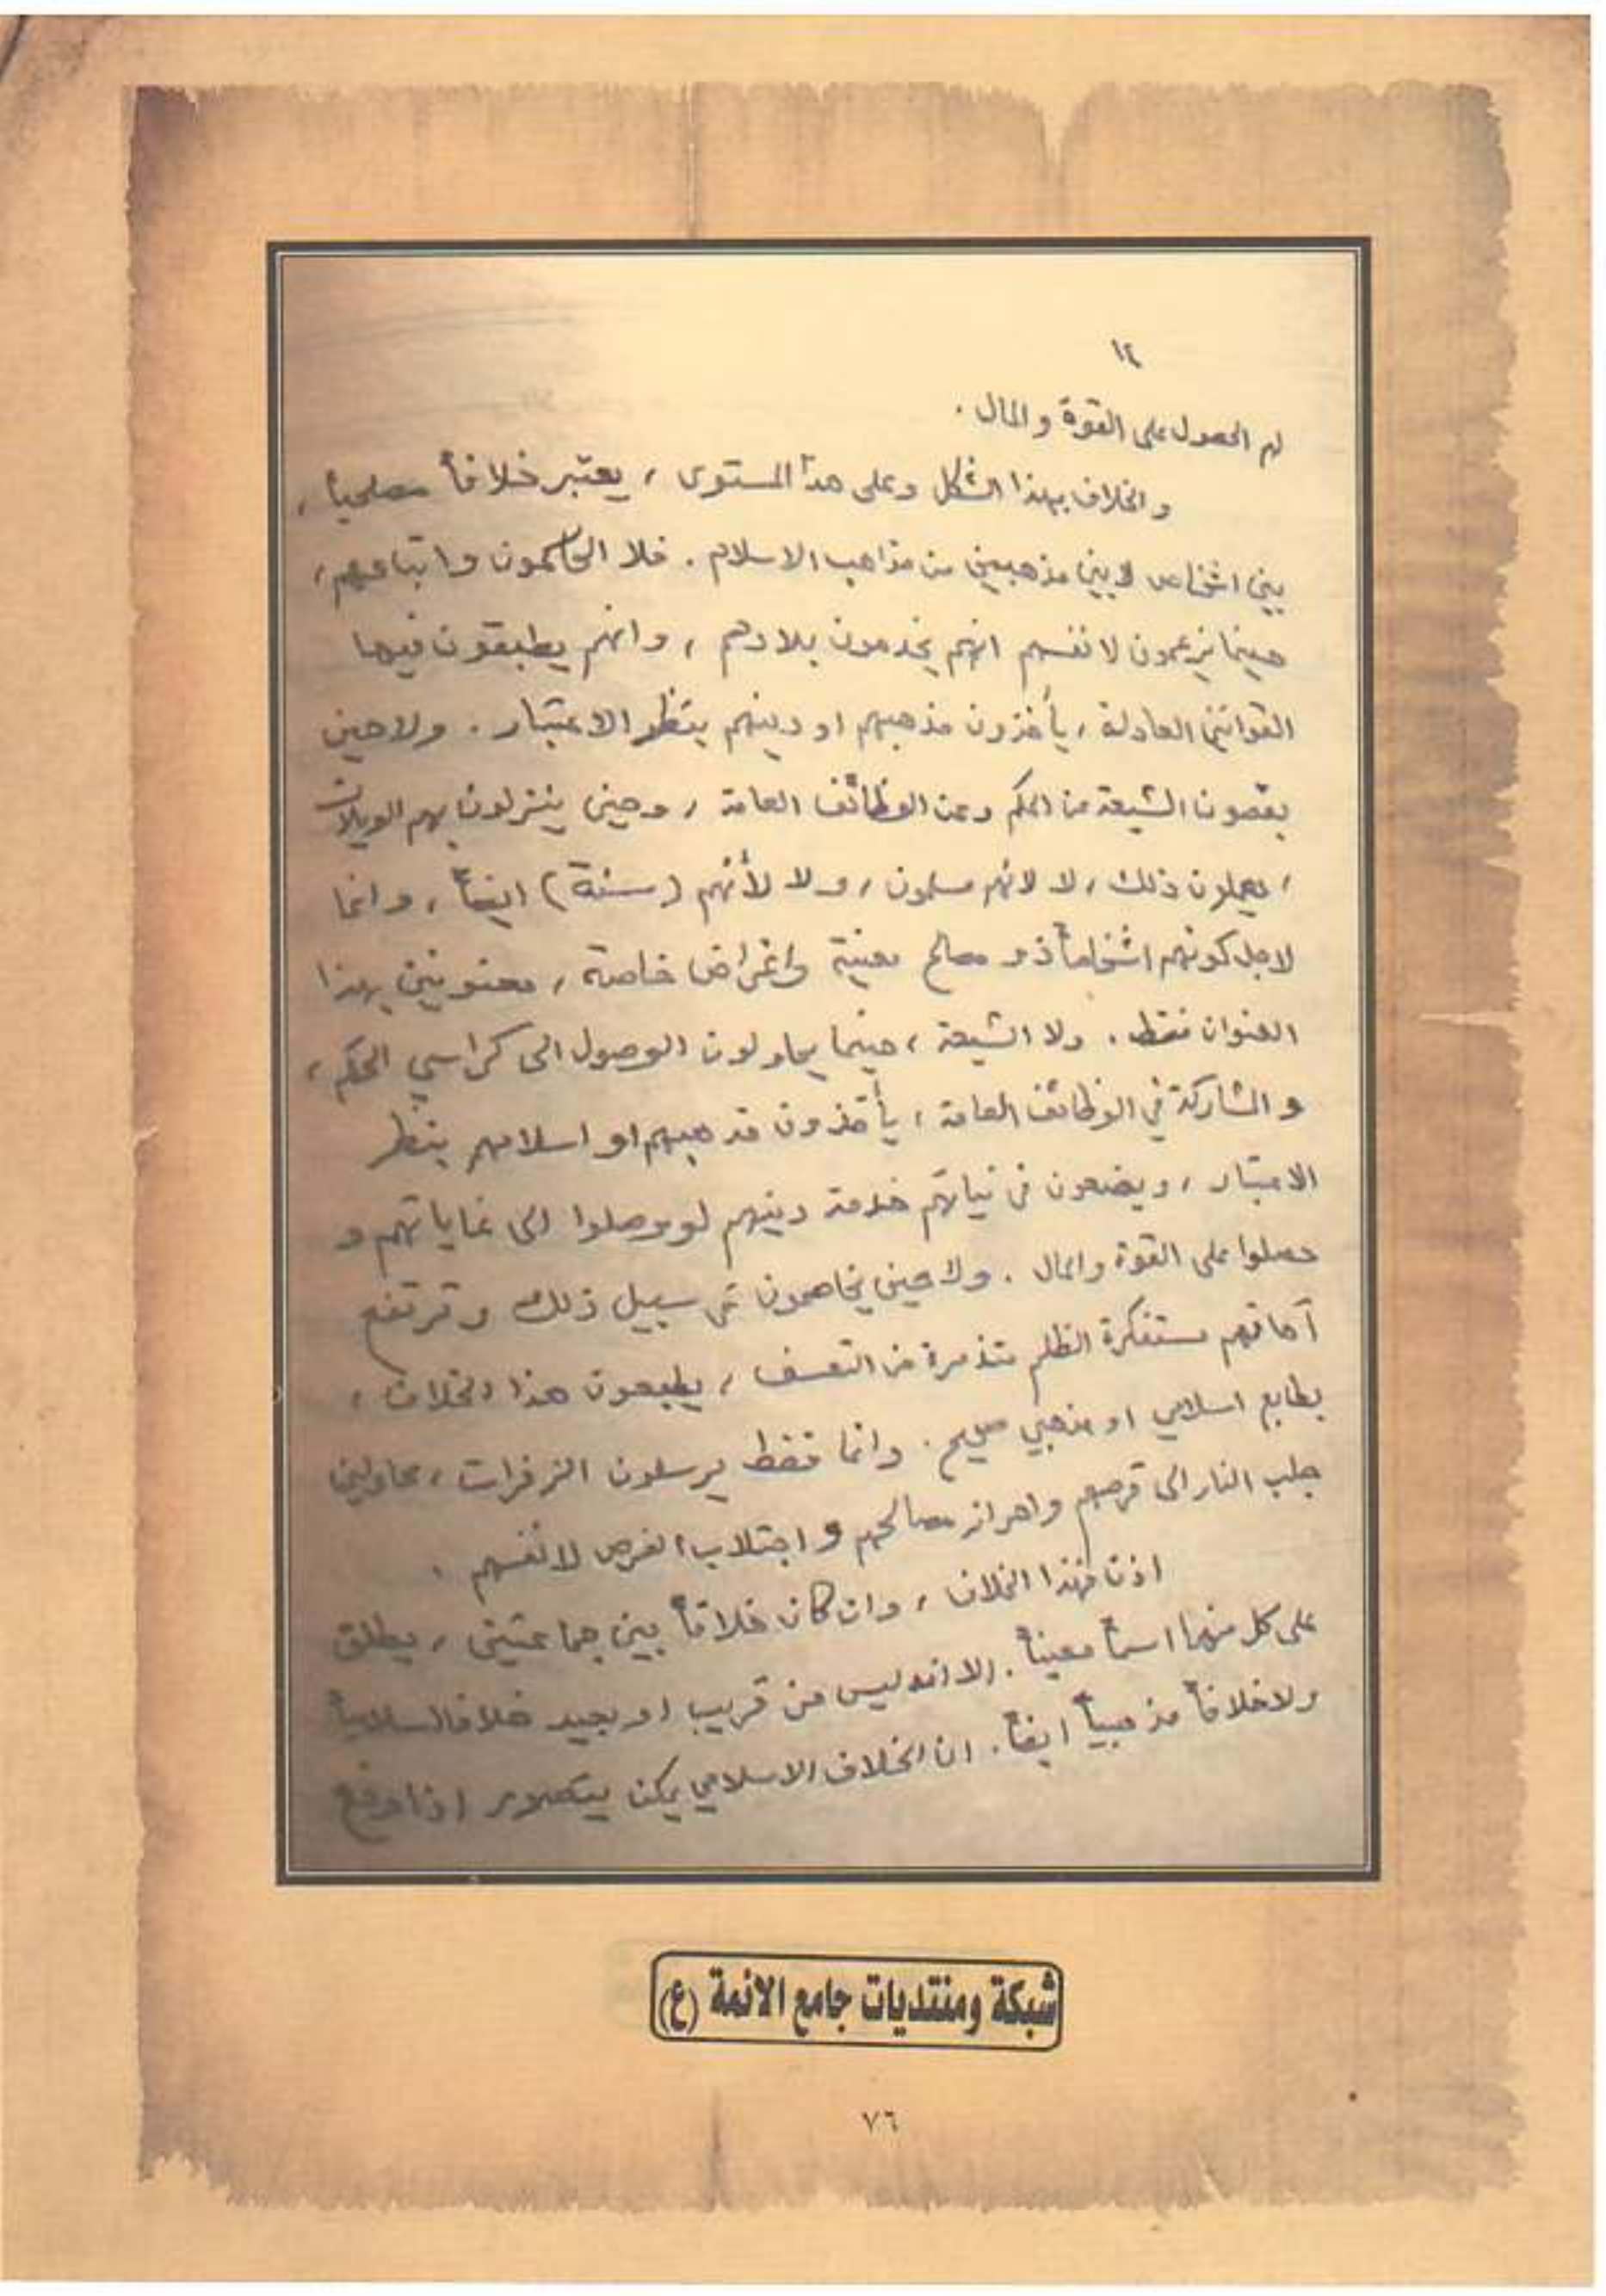 ١٢
لهم الحصول على القوة والمال .
والخلاف بهذا الشكل وعلى هذا المستوى ، يعتبر خلافاً مصلحياً ،
بين اشخاص لا بين مذهبين من مذاهب الاسلام . فلا الحاكمون واتباعهم ،
حينما يزعمون لانفسهم انهم يخدمون بلادهم ، وانهم يطبقون فيها
القوانين العادلة ، يأخذون مذهبهم او دينهم بنظر الاعتبار . ولا حين
يقصون الشيعة من الحكم وعن الوظائف العامة ، وحين ينزلون بهم الويلات
، يعملون ذلك ، لا لانهم مسلمون ، ولا لأنهم (سنة) ايضاً ، وانما
لاجل كونهم اشخاصاً ذو مصالح معينة واغراض خاصة ، معنونين بهذا
العنوان فقط . ولا الشيعة ، حينما يحاولون الوصول الى كراسي الحكم ،
و المشاركة في الوظائف العامة ، يأخذون مذهبهم او اسلامهم بنظر
الاعتبار ، ويضعون في نياتهم خدمة دينهم لو وصلوا الى غاياتهم و
حصلوا على القوة والمال . ولا حين يخاصمون في سبيل ذلك وترتفع
مستنكرة الظلم متذمرة من التعسف ، يطبعون هذا الخلاف ،
بطابع اسلامي او مذهبي صحيح . وانما فقط يرسلون الزفرات ، محاولين
جلب النار الى قرصهم واحراز مصالحهم و اجتلاب الفرص لانفسهم .
اذن فهذا الخلاف ، وان كان خلافاً بين جماعتين ، يطلق
على كل منهما اسماً معيناً . الا انه ليس من قريب او بعيد خلافا اسلامياً
ولا خلافاً مذهبياً ايضاً . ان الخلاف الاسلامي يمكن يتصور اذا وقع
شبكة ومنتديات جامع الائمة (ع)
٧٦